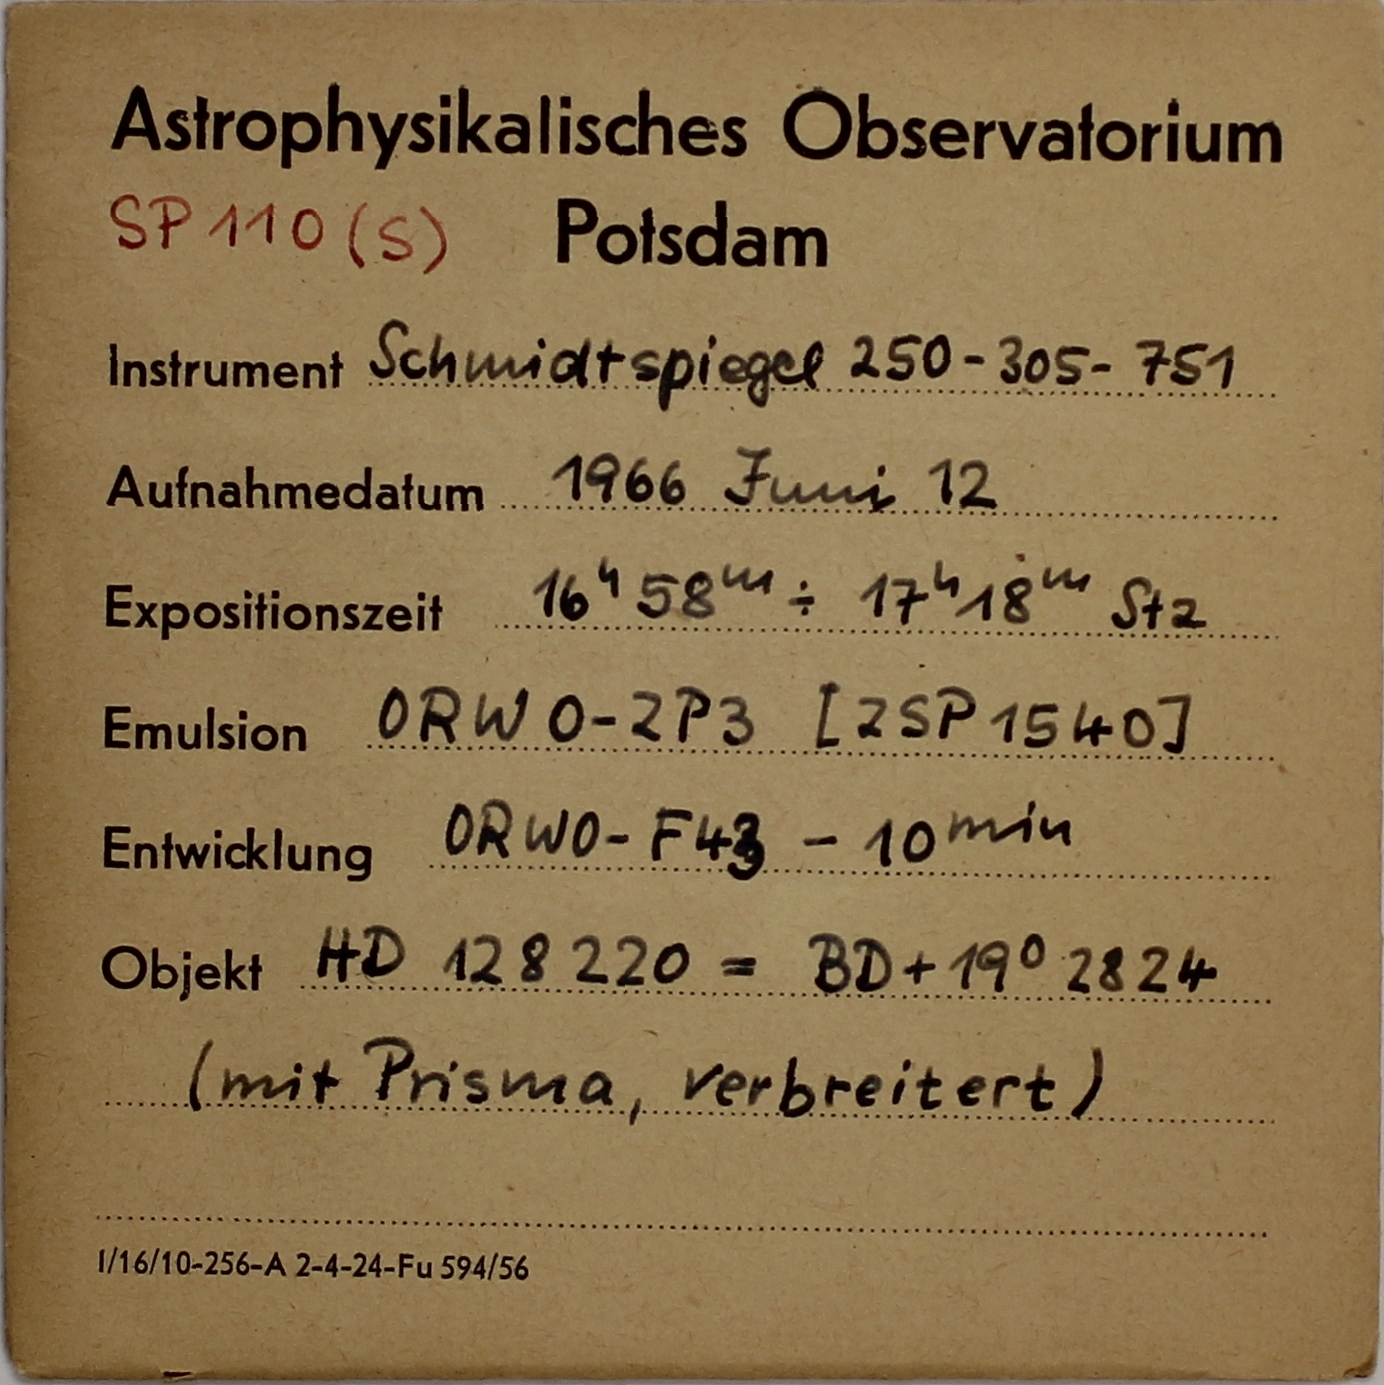 Astrophysikalisches Observatorium
SP 110 (S) Potsdam
Instrument Schmidtspiegel 250-305-751
Aufnahmedatum 1966 Juni 12
Expositionszeit 16ʰ 58ᵐ ÷ 17ʰ 18ᵐ Stz
Emulsion ORWO-ZP3 [ZSP 1540]
Entwicklung ORWO-F43 - 10 min
Objekt HD 128 220 = BD+19⁰ 2824
(mit Prisma, verbreitert)
I/16/10-256-A 2-4-24-Fu 594/56